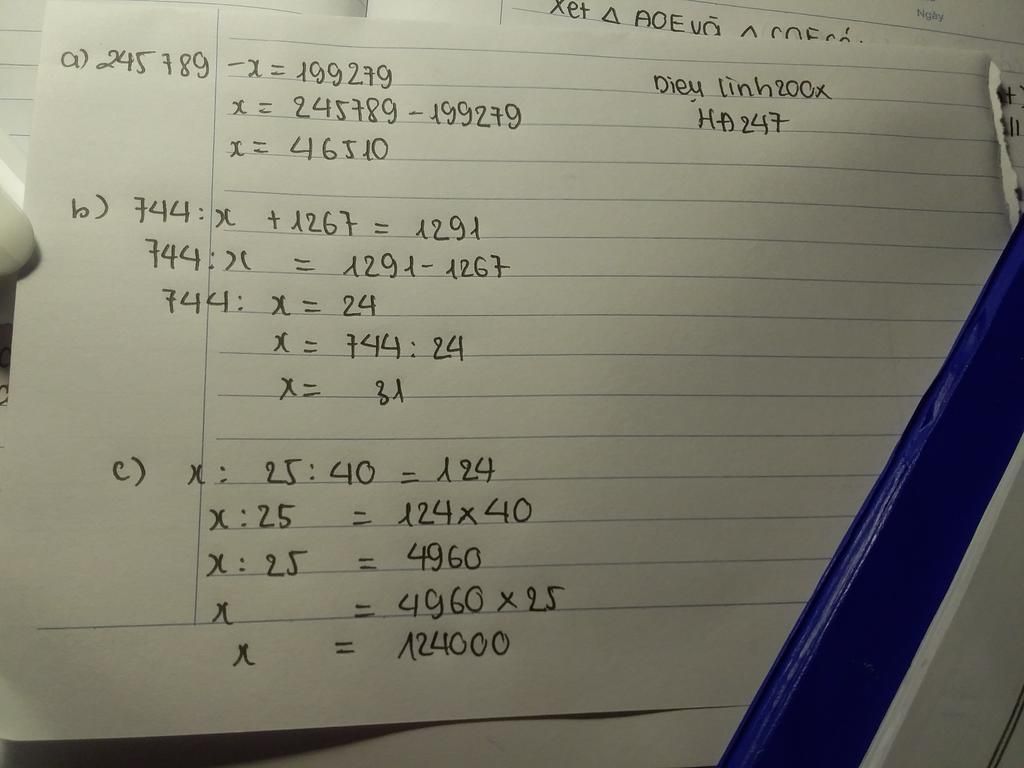 Xét Δ AOE và
Ngày
a) 245789 - x = 199279
x = 245789 - 199279
x = 46510
Diệu linh200x
HĐ247
b) 744 : x + 1267 = 1291
744 : x = 1291 - 1267
744 : x = 24
x = 744 : 24
x = 31
c) x : 25 : 40 = 124
x : 25 = 124 x 40
x : 25 = 4960
x = 4960 x 25
x = 124000